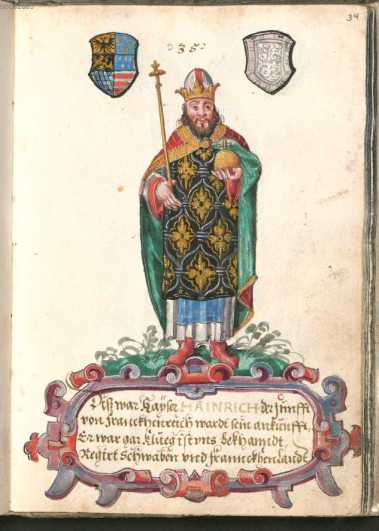 34
35
Diß war Kayser HAINRICH der fünfft
von Franckhenreich wardt sein ankunfft,
Er war gar klueg ist vns bekhanndt,
Regiert Schwaben vnd Franckhenlandt